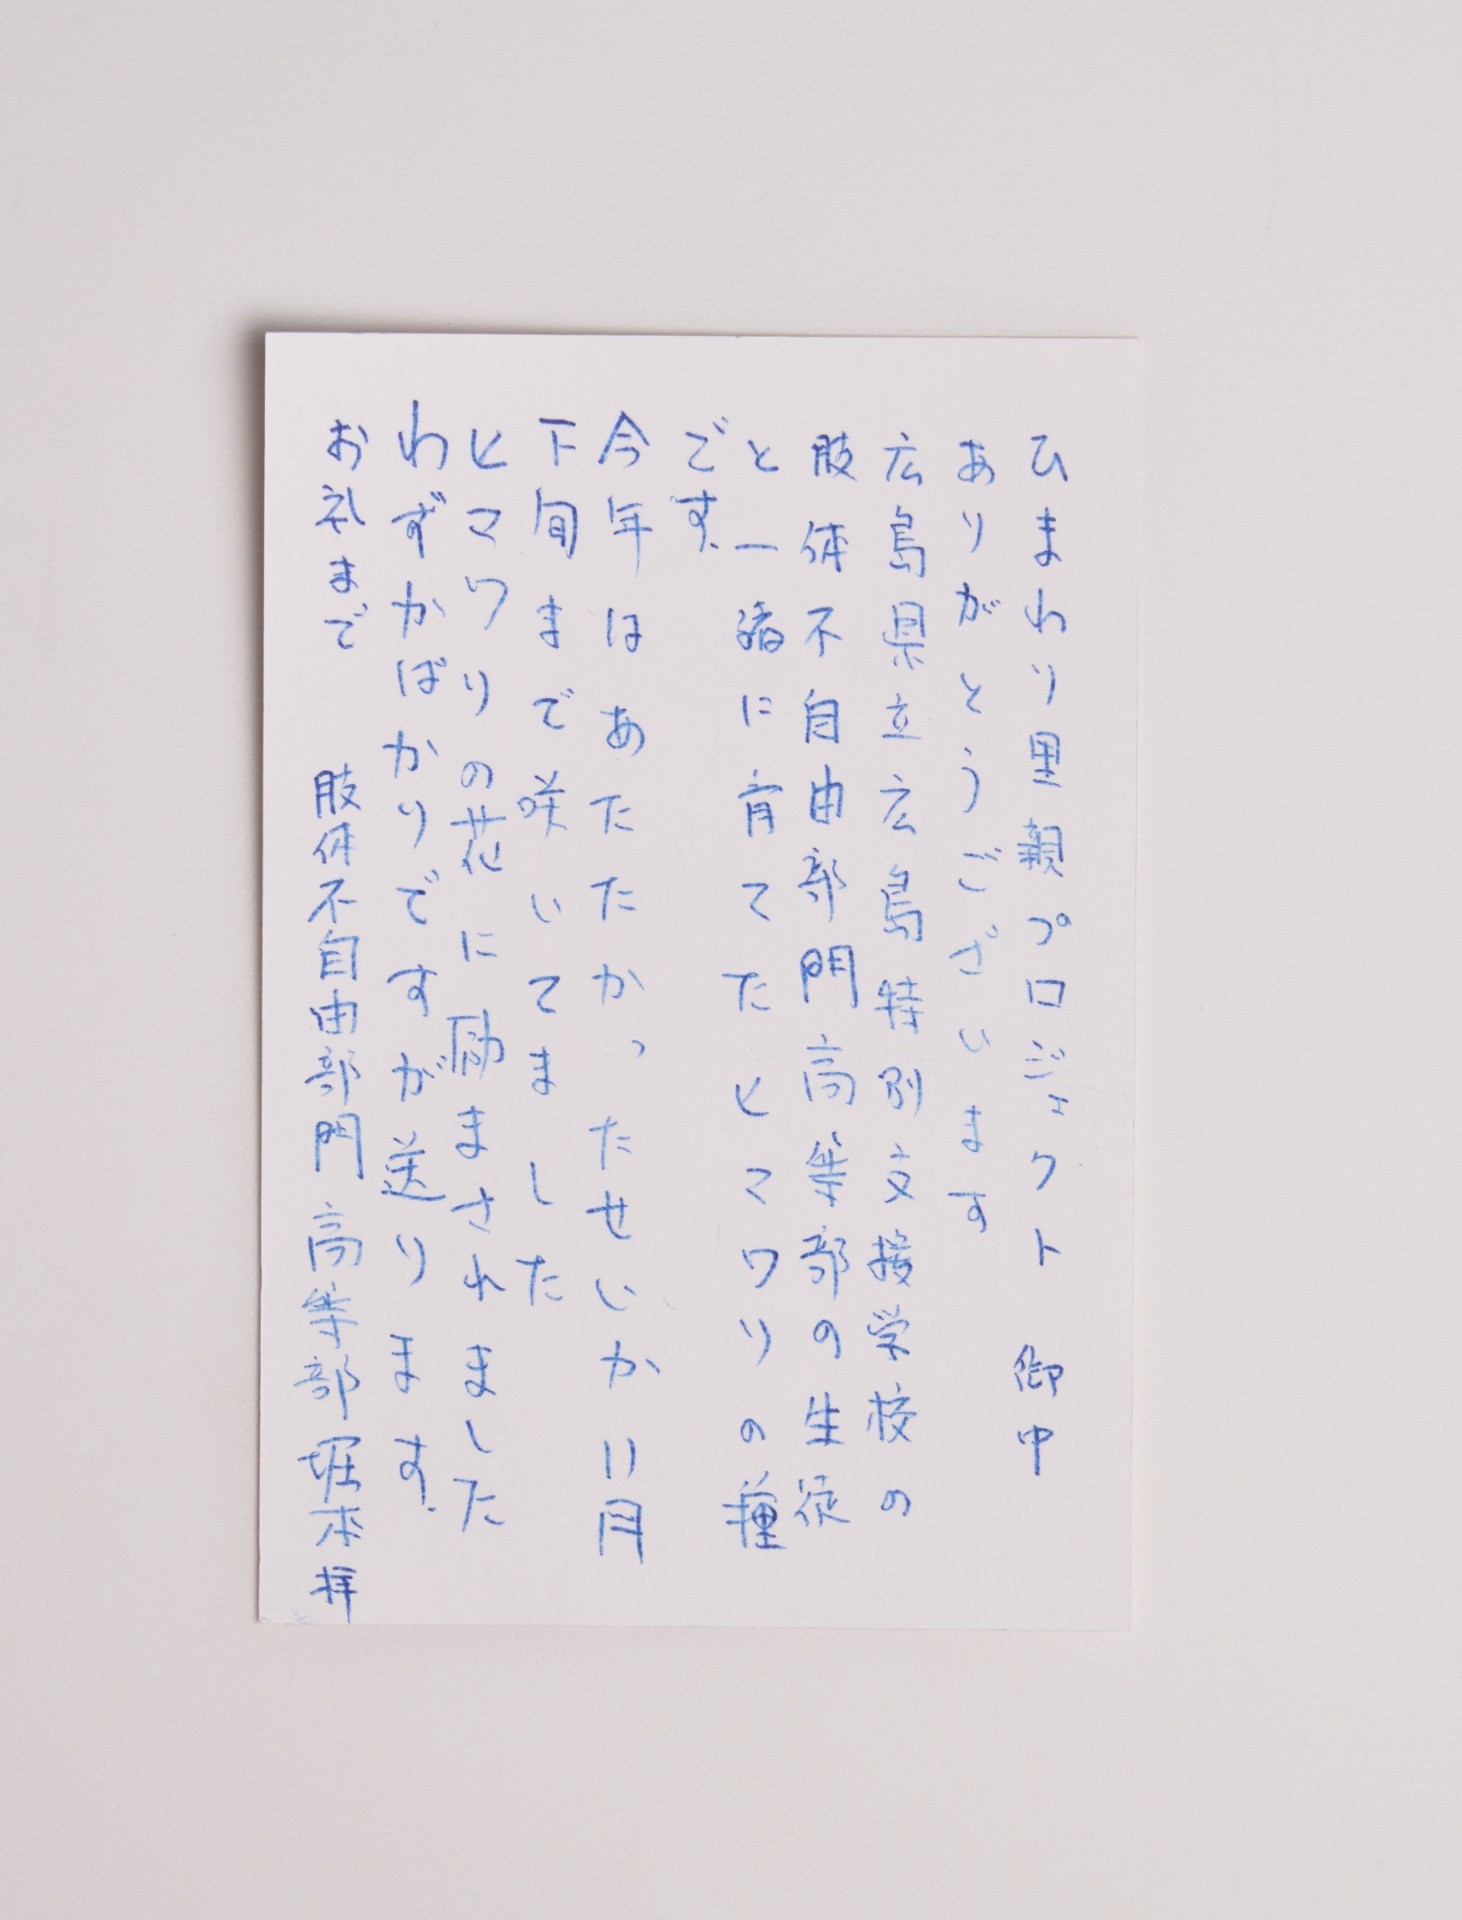 ひまわり里親プロジェクト 御中
ありがとうございます
広島県立広島特別支援学校の
肢体不自由部門高等部の生徒
と一緒に育てたヒマワリの種
です.
今年はあたたかったせいか11月
下旬まで咲いてました
ヒマワリの花に励まされました
わずかばかりですが送ります.
お礼まで 肢体不自由部門高等部堀本拝